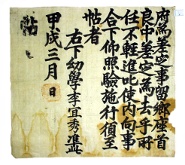 府爲差定事留鄕座首
良中差定爲去乎所
任不輕進叱使內向事
合下仰照驗施行須至
帖者
右下幼學李宜秀準此
甲戌三月 日
帖